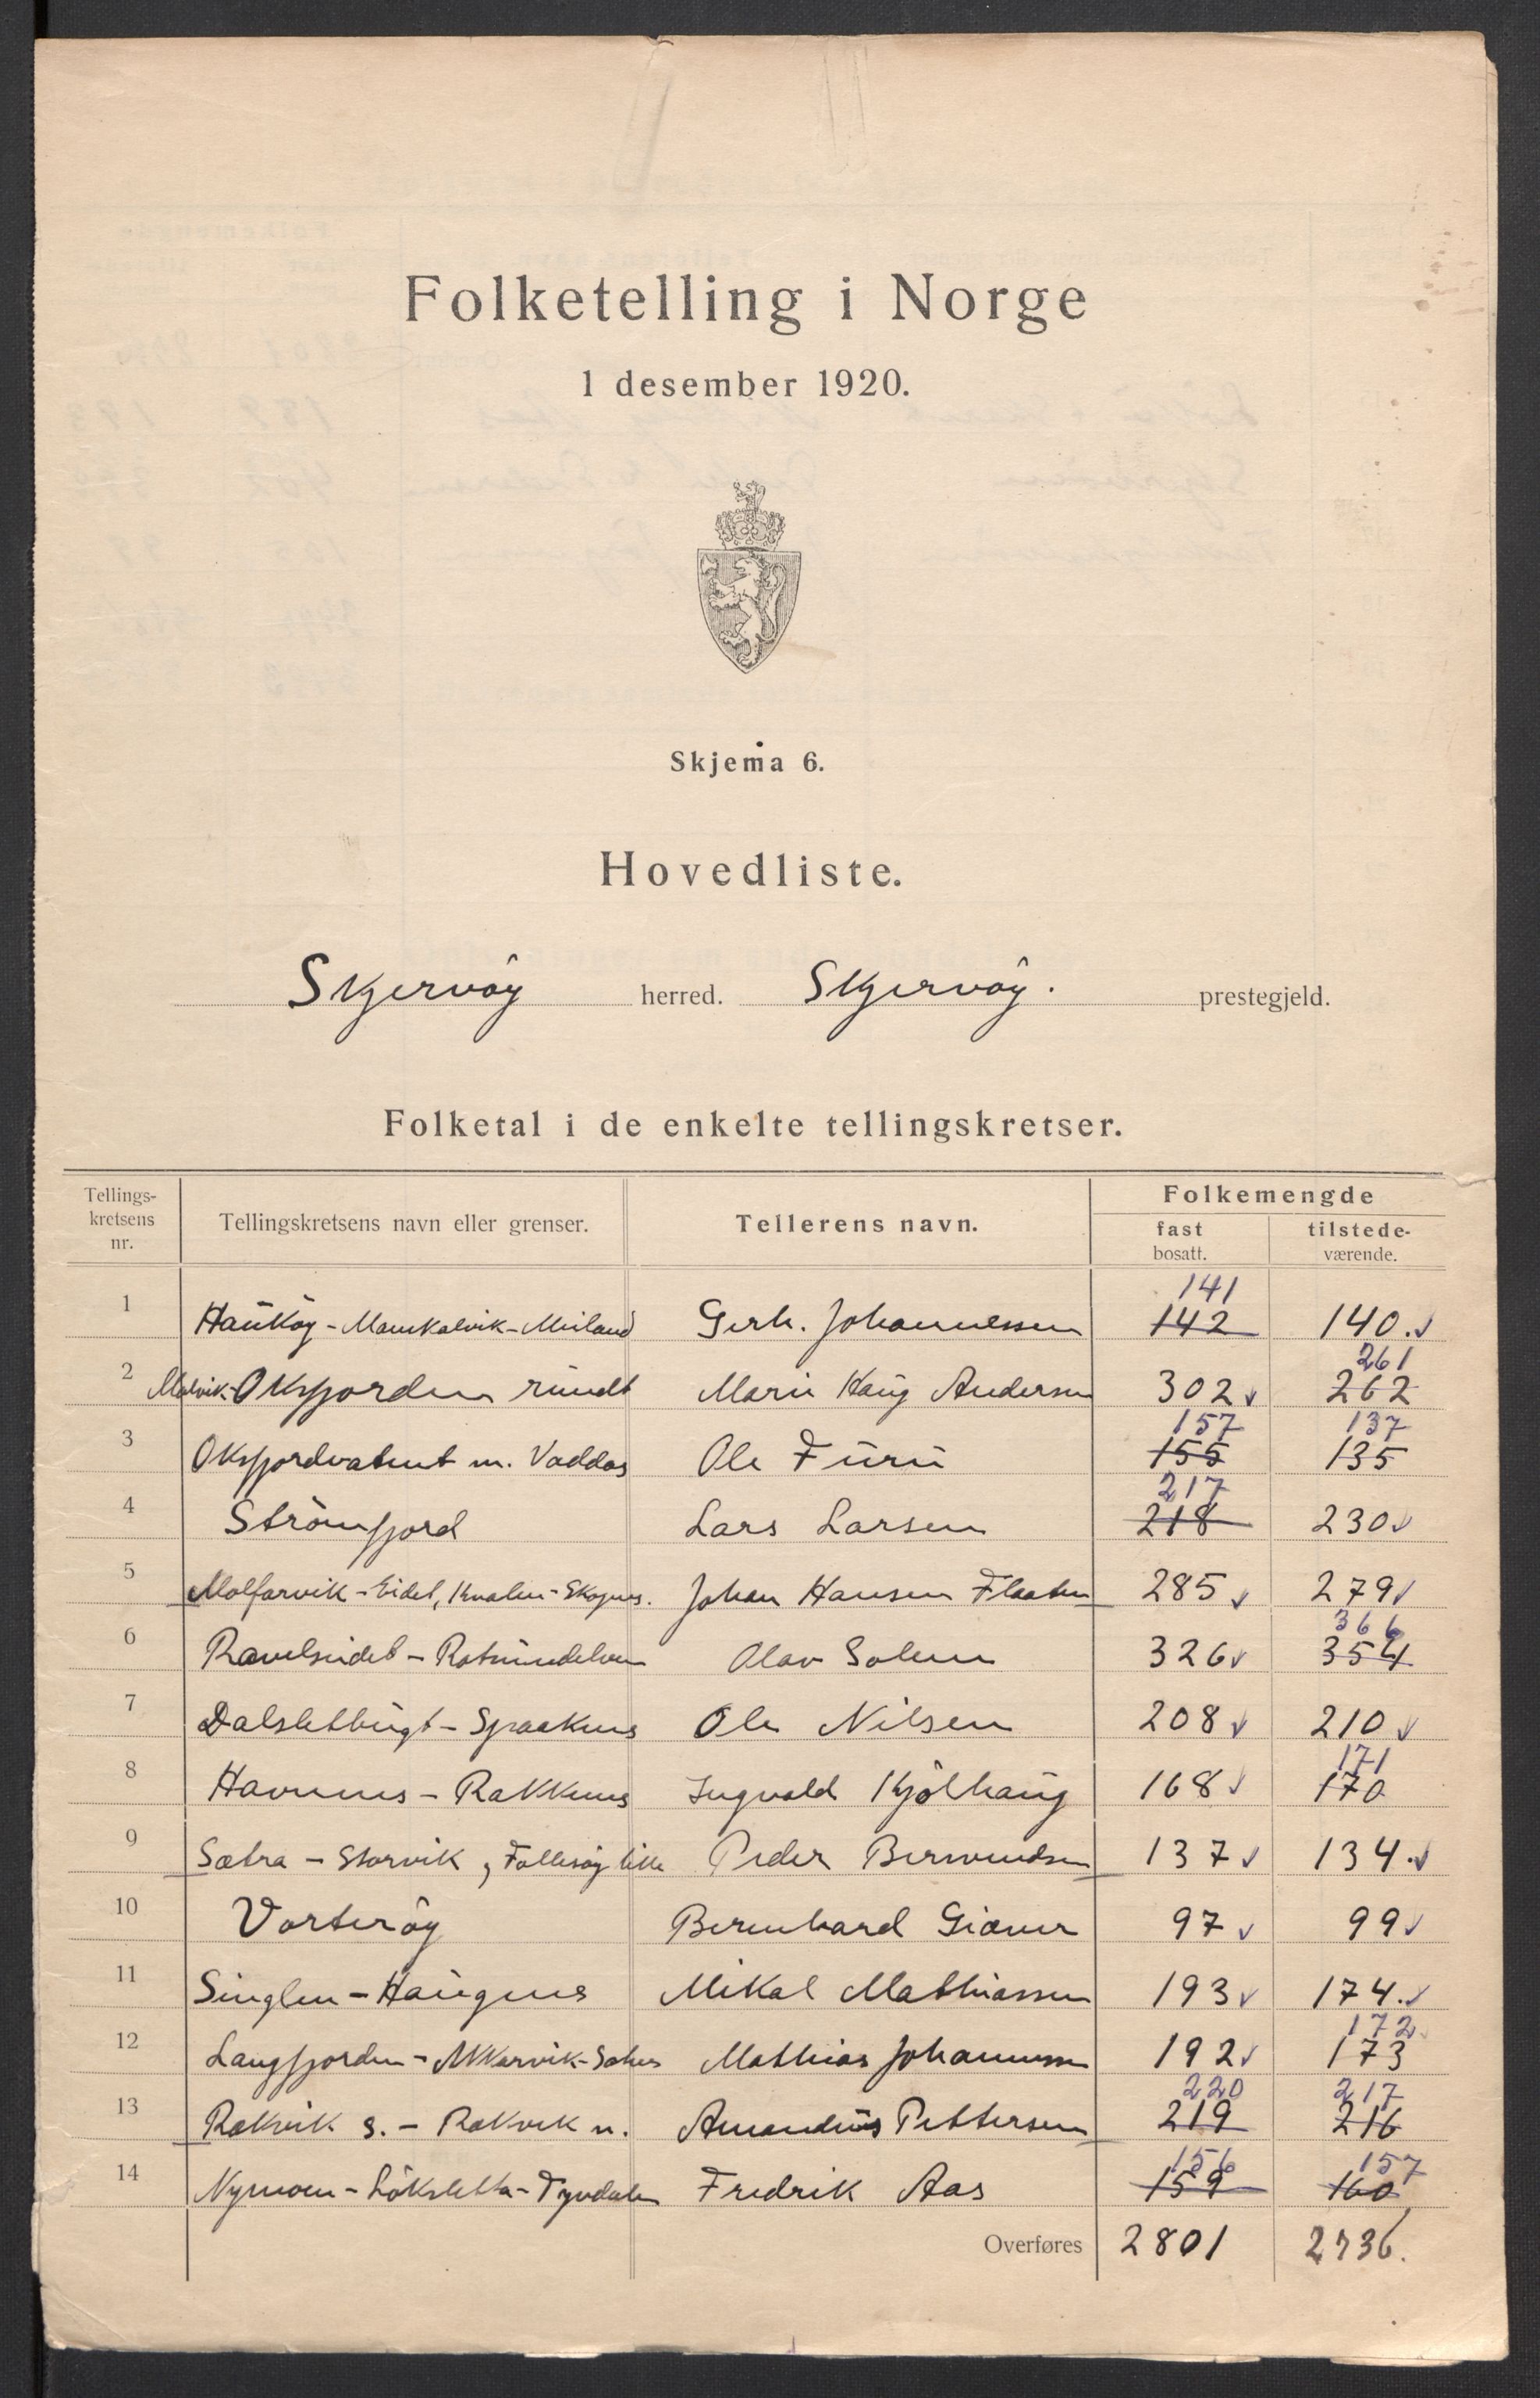 Folketelling i Norge
1 desember 1920.
Skjema 6.
Hovedliste.
Skjervöy herred. Skjervöy. prestegjeld.
Folketal i de enkelte tellingskretser.
Tellings-kretsens nr. Tellingskretsens navn eller grenser. Tellerens navn. Folkemengde
fast bosatt. tilstede-værende.
141
1 Hauköy - Maurkalvik - Meiland Gerh. Johannessen 142 140.
261
2 Malvik - Oksfjorden rundt Marie Haug Andersen 302 262
157 137
3 Oksfjordvatnet m. Vaddas Ole Furu 155 135
217
4 Strömfjord Lars Larsen 218 230
5 Molfarvik - Eidet, Kvalen - Skognes. Johan Hansen Flaaten 285 279
366
6 Ravelseidet - Rotsundelven Olav Solem 326 354
7 Dalsletbugt - Spraaknes Ole Nilsen 208 210
171
8 Havnnes - Rakknes Ingvald Kjölhaug 168 170
9 Sætra - Storvik, Follesöy lille Peder Bernendsen 137 134.
10 Vorteröy Bernhard Giæver 97 99
11 Singlen - Haugnes Mikal Mathiassen 193 174.
172
12 Langfjorden - Akkarvik - Mathias Johannessen 192 173
220 217
13 Rakvik s. - Rakvik n. Amandus Pettersen 219 216
156 157
14 Nymoen - Löksletta - Tyvdalen Fredrik Aas 159 160
Overføres 2801 2736.